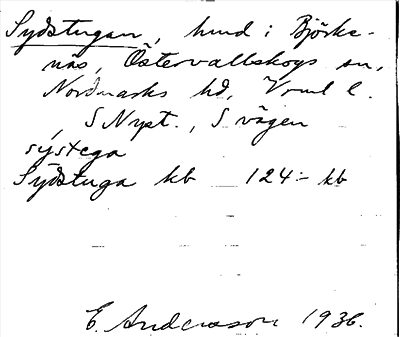 Sydstugan, hmd i Björks-
näs, Östervallskogs sn,
Nordmarks hd, Vrml l.
, S Nyst., S vägen
sýstega
Sydstuga kb 124:- kb
E. Anderson 1936.